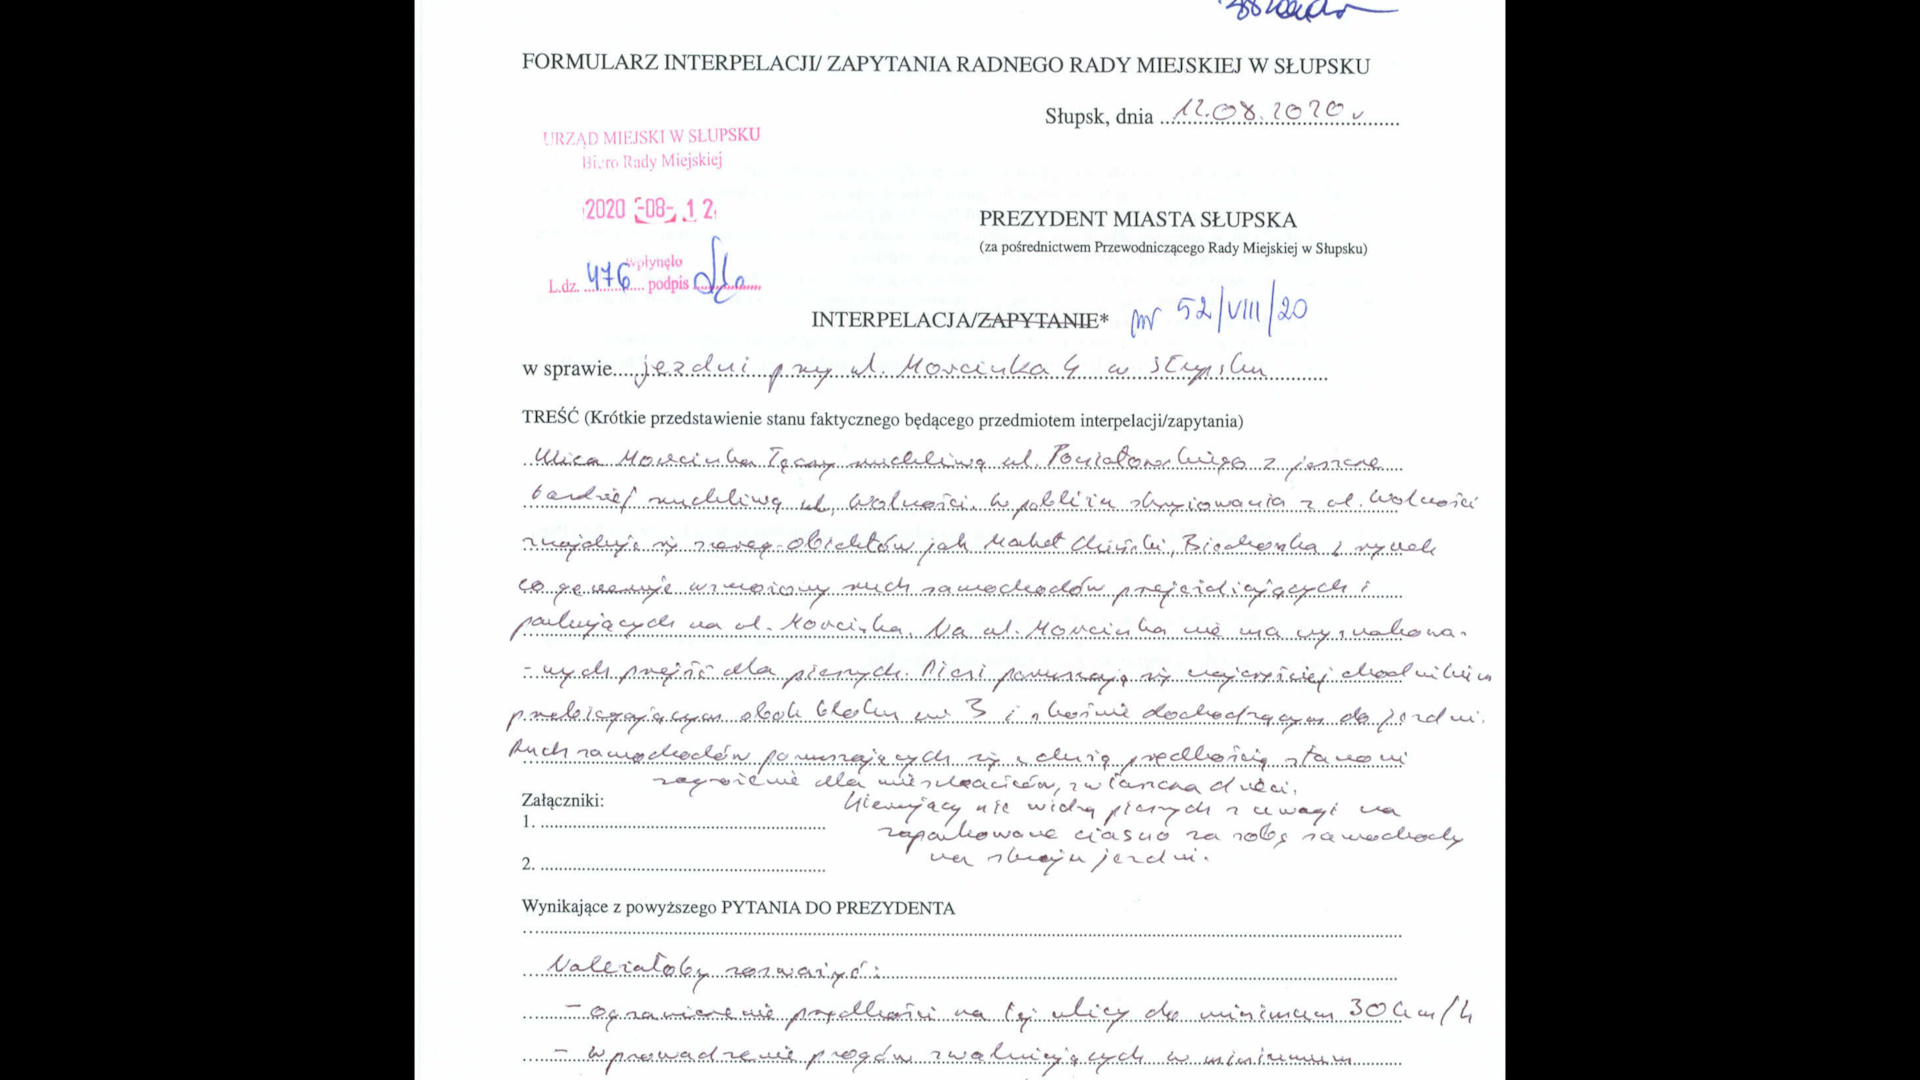 FORMULARZ INTERPELACJI/ ZAPYTANIA RADNEGO RADY MIEJSKIEJ W SŁUPSKU
Słupsk, dnia 12.08.2020 r
URZĄD MIEJSKI W SŁUPSKU
Biuro Rady Miejskiej
2020 -08- 12
wpłynęło
L.dz. 476 podpis
PREZYDENT MIASTA SŁUPSKA
(za pośrednictwem Przewodniczącego Rady Miejskiej w Słupsku)
INTERPELACJA/ZAPYTANIE* nr 52/VIII/20
w sprawie jezdni przy ul. Morcinka 4 w Słupsku
TREŚĆ (Krótkie przedstawienie stanu faktycznego będącego przedmiotem interpelacji/zapytania)
Ulica Morcinka łączy ruchliwą ul. Poniatowskiego z jeszcze
bardziej ruchliwą ul. Wolności. W pobliżu skrzyżowania z ul. Wolności
znajduje się szereg obiektów jak Market Chiński, Biedronka i rynek
co generuje wzmożony ruch samochodów przejeżdżających i
parkujących na ul. Morcinka. Na ul. Morcinka nie ma wyznakowa-
-nych przejść dla pieszych. Piesi poruszają się najczęściej chodnikiem
przebiegającym obok bloku nr 3 i skośnie dochodzącym do jezdni.
Ruch samochodów poruszających się z dużą prędkością stanowi
zagrożenie dla mieszkańców, zwłaszcza dzieci.
Kierujący nie widzą pieszych z uwagi na
zaparkowane ciasno za sobą samochody
na skraju jezdni.
Załączniki:
1.
2.
Wynikające z powyższego PYTANIA DO PREZYDENTA
Należałoby rozważyć:
- ograniczenie prędkości na tej ulicy do minimum 30 km/h
- wprowadzenie progów zwalniających w minimum